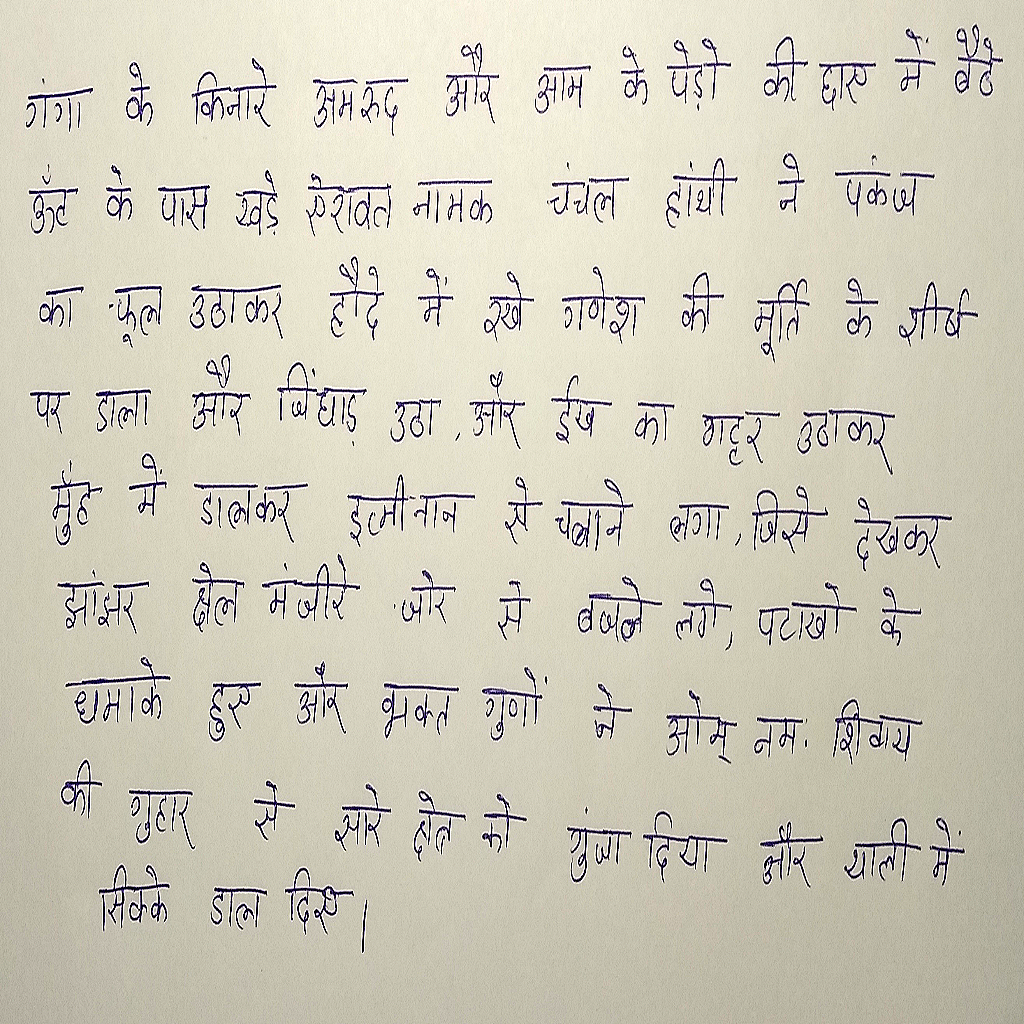 गंगा के किनारे अमरुद और आम के पेड़ो की छाए में बैठे
ऊँट के पास खड़े ऐरावत नामक चंचल हांथी ने पंकज
का फूल उठाकर हौदे में रखे गणेश की मूर्ति के शीर्ष
पर डाला और चिंघाड़ उठा, और ईख का गट्टर उठाकर
मुँह में डालकर इत्मीनान से चबाने लगा, जिसे देखकर
झांझर ढोल मंजीरे जोर से बजने लगे, पटाखो के
धमाके हुए और भक्त गुणों ने ओम् नमः शिवाय
की गुहार से सारे क्षेत्र को गुंजा दिया और थाली में
सिक्के डाल दिए।